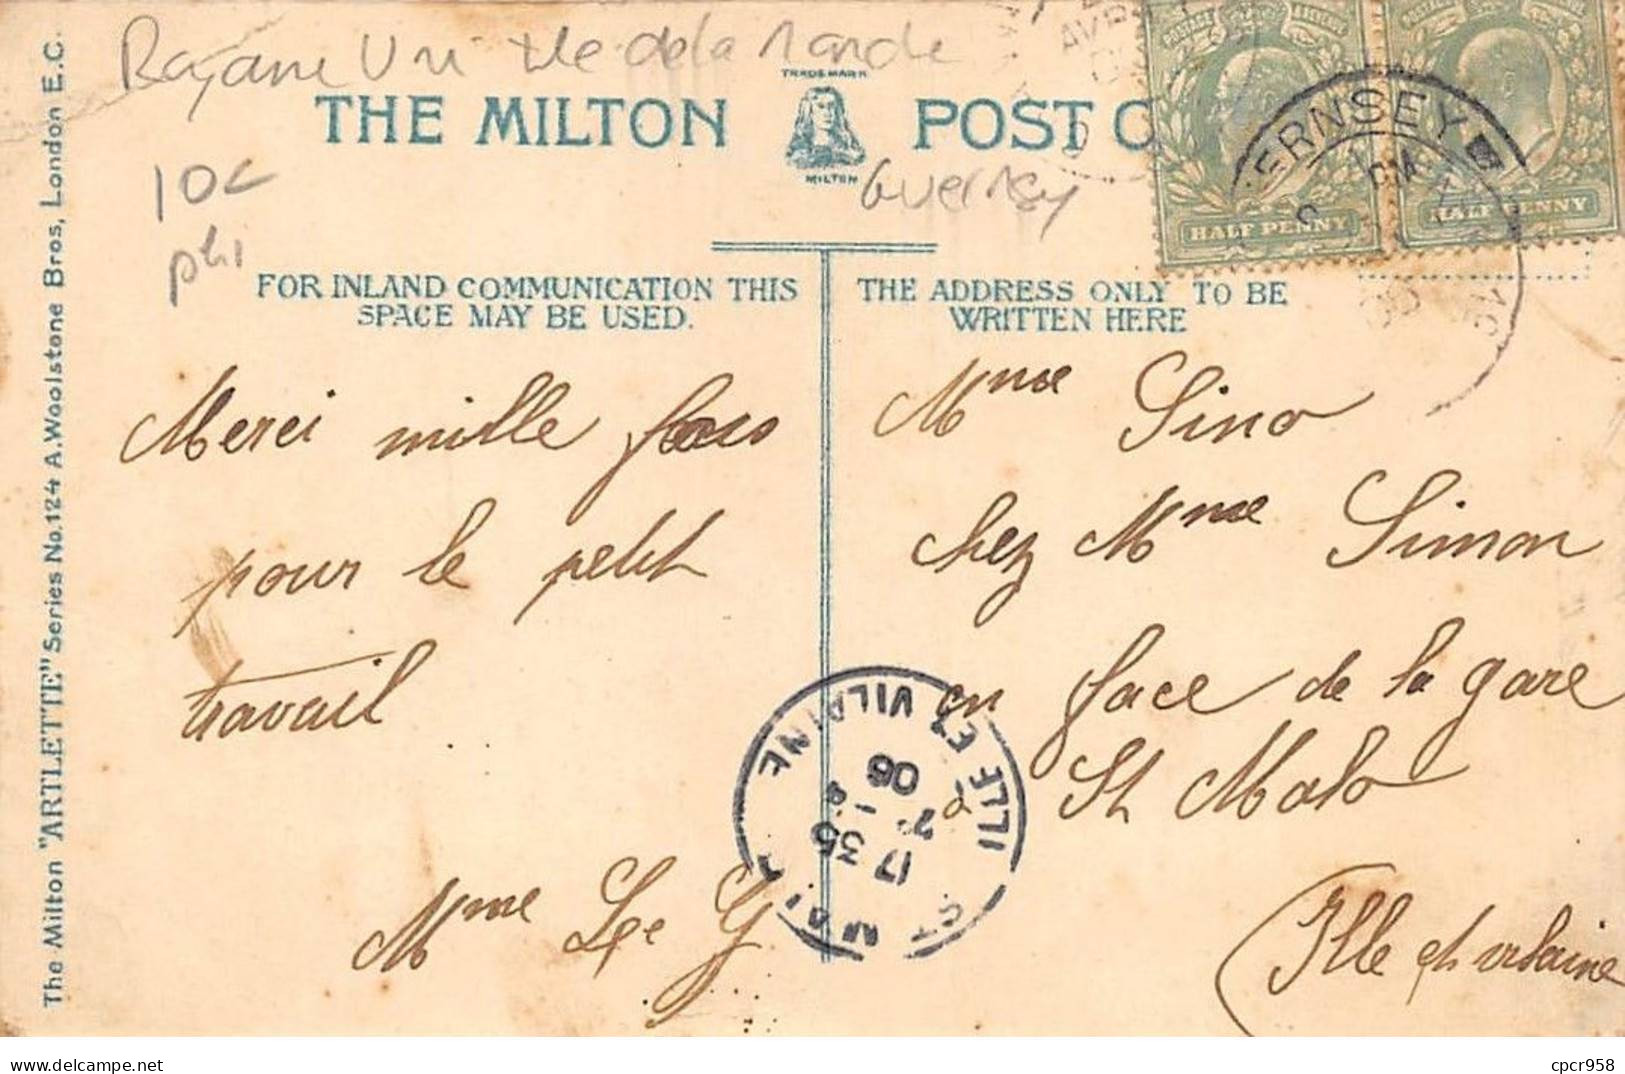 Royaume Uni Ile de la Manche
TRADE MARK
THE MILTON POST C
MILTON
Guernsey
10c
phi
HALF PENNY
HALF PENNY
ERNSEY
FOR INLAND COMMUNICATION THIS
SPACE MAY BE USED.
THE ADDRESS ONLY TO BE
WRITTEN HERE
Merci mille fois
pour le petit
travail
Mme Le G
Mme Sino
chez Mme Simon
en face de la gare
à St Malo
Ille et vilaine
ST MALO
ILLE ET VILAINE
17 35
06
The Milton "ARTLETTE" Series No. 124 A. Woolstone Bros, London E.C.
cpcr958